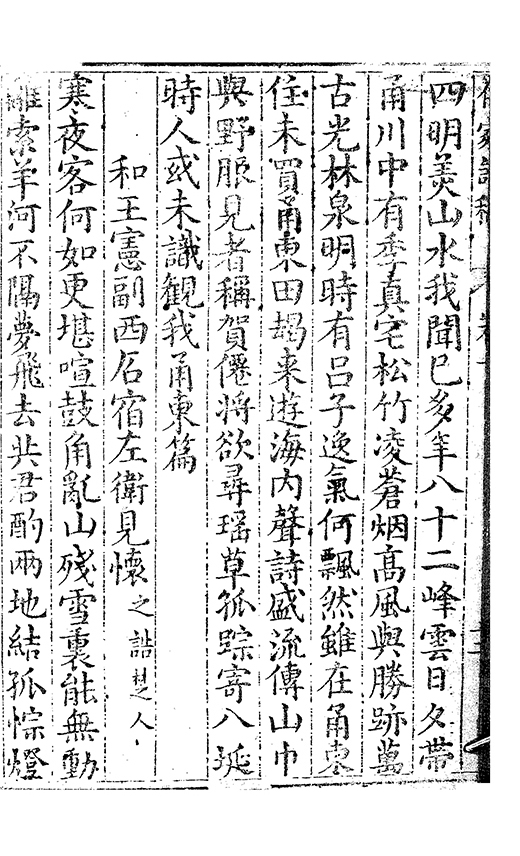 四明美山水我聞已多年八十二峰雲日夕帶
甬川中有季真宅松竹凌蒼烟高風與勝跡萬
古光林泉明時有呂子逸氣何飄然雖在甬東
住未買甬東田朅来遊海内聲詩盛流傳山巾
與野服見者稱賀僊将欲尋瑶草孤踪寄八埏
時人或未識觀我甬東篇
和王憲副西石宿左衛見懷之誥楚人
寒夜客何如更堪喧鼓角亂山殘雪裏能無動
離索羊河不隔夢飛去共君酌兩地結孤悰燈